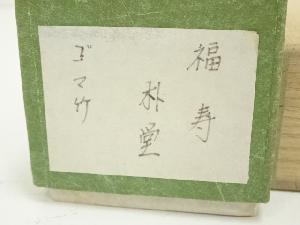 福寿
朴堂
ゴマ竹